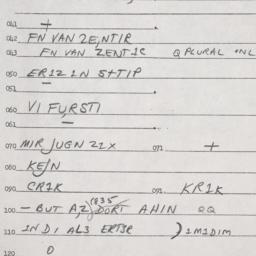 041 +
042 FN VAN ZENTIR
043 FN VAN ZENT1C QPLURAL ONL
050 ER1Z 1N S++IP
051
060 VI FURSTI
061
070 MIR JUGN 21X 071 +
080 KEIN
090 CR1K 091 KR1K
100 - BUT A,Z) DORT AHIN QQ
110 1N D1 AL3 ERTSR )1M1D1M
120 0